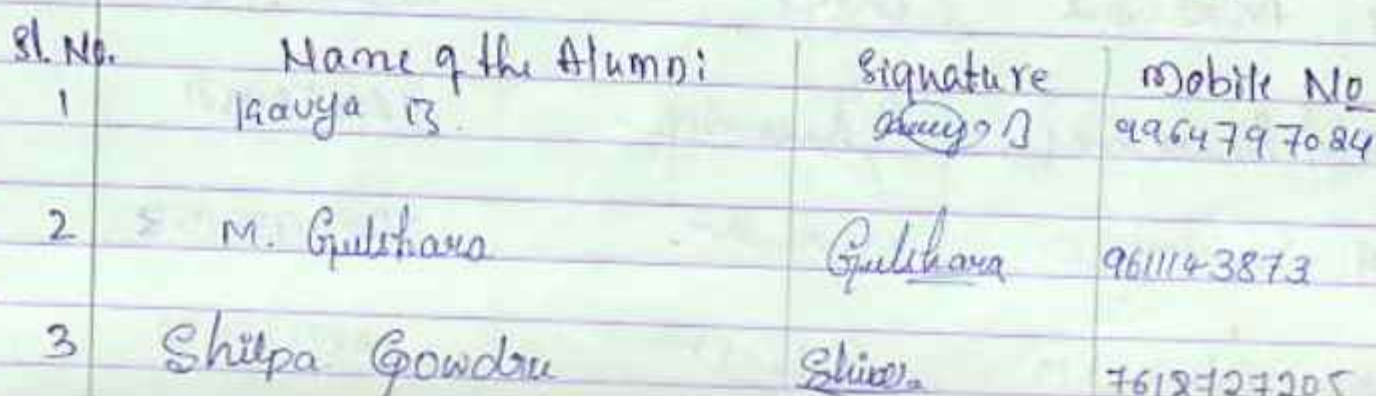 Sl. No. Name of the Alumni Signature Mobile No
1 Kavya B. Kavya B 9964797084
2 M. Gulshara Gulshara 9611143873
3 Shilpa Gowdru 7618727205